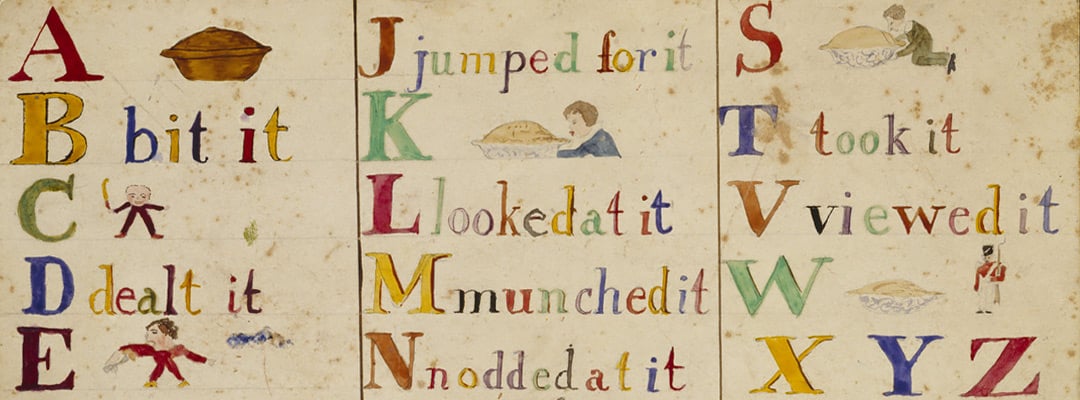 A
B bit it
C
D dealt it
E
J jumped for it
K
L looked at it
M munched it
N nodded at it
S
T took it
V viewed it
W
X Y Z